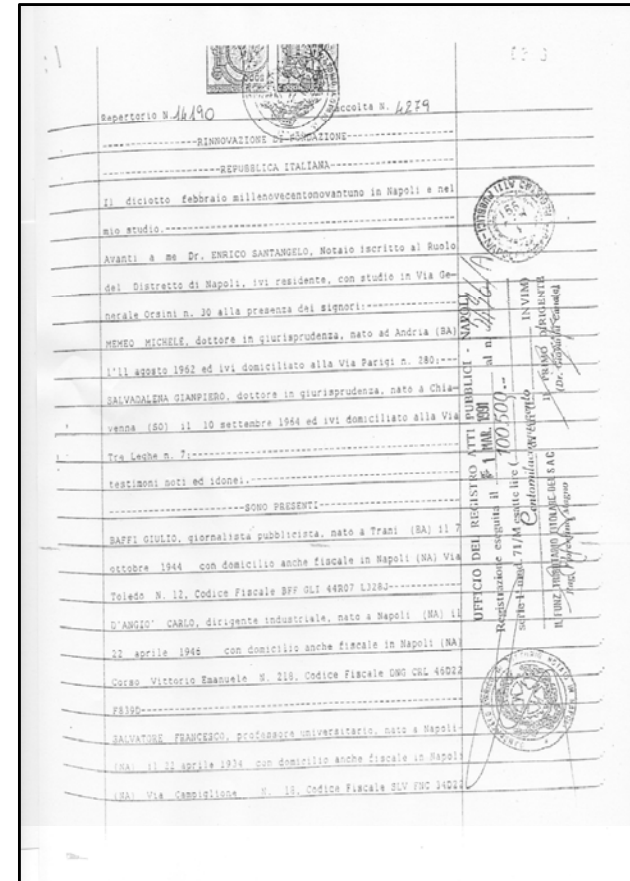 Repertorio N. 14190 Raccolta N. 4279
RINNOVAZIONE DI FONDAZIONE
REPUBBLICA ITALIANA
Il diciotto febbraio millenovecentonovantuno in Napoli e nel
mio studio.
Avanti a me Dr. ENRICO SANTANGELO, Notaio iscritto al Ruolo
del Distretto di Napoli, ivi residente, con studio in Via Ge-
nerale Orsini n. 30 alla presenza dei signori:
MEMEO MICHELE, dottore in giurisprudenza, nato ad Andria (BA)
l'11 agosto 1962 ed ivi domiciliato alla Via Parigi n. 280;
SALVADALENA GIANPIERO, dottore in giurisprudenza, nato a Chia-
venna (SO) il 10 settembre 1964 ed ivi domiciliato alla Via
Tre Leghe n. 7;
testimoni noti ed idonei.
SONO PRESENTI
BAFFI GIULIO, giornalista pubblicista, nato a Trani (BA) il 7
ottobre 1944 con domicilio anche fiscale in Napoli (NA) Via
Toledo N. 12, Codice Fiscale BFF GLI 44R07 L328J
D'ANGIO' CARLO, dirigente industriale, nato a Napoli (NA) il
22 aprile 1946 con domicilio anche fiscale in Napoli (NA)
Corso Vittorio Emanuele N. 218, Codice Fiscale DNG CRL 46D22
F839D
SALVATORE FRANCESCO, professore universitario, nato a Napoli
(NA) il 22 aprile 1934 con domicilio anche fiscale in Napoli
(NA) Via Campiglione N. 18, Codice Fiscale SLV FNC 34D22
UFFICIO DEL REGISTRO ATTI PUBBLICI - NAPOLI
Registrazione eseguita il 1 MAR. 1991 al n.
serie 1ª mod. 71/M esatte lire ( 100.500
di cui L. INVIM
IL PRIMO DIRIGENTE